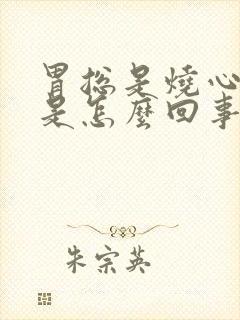 胃总是燒心
是怎麼回事
朱宗英